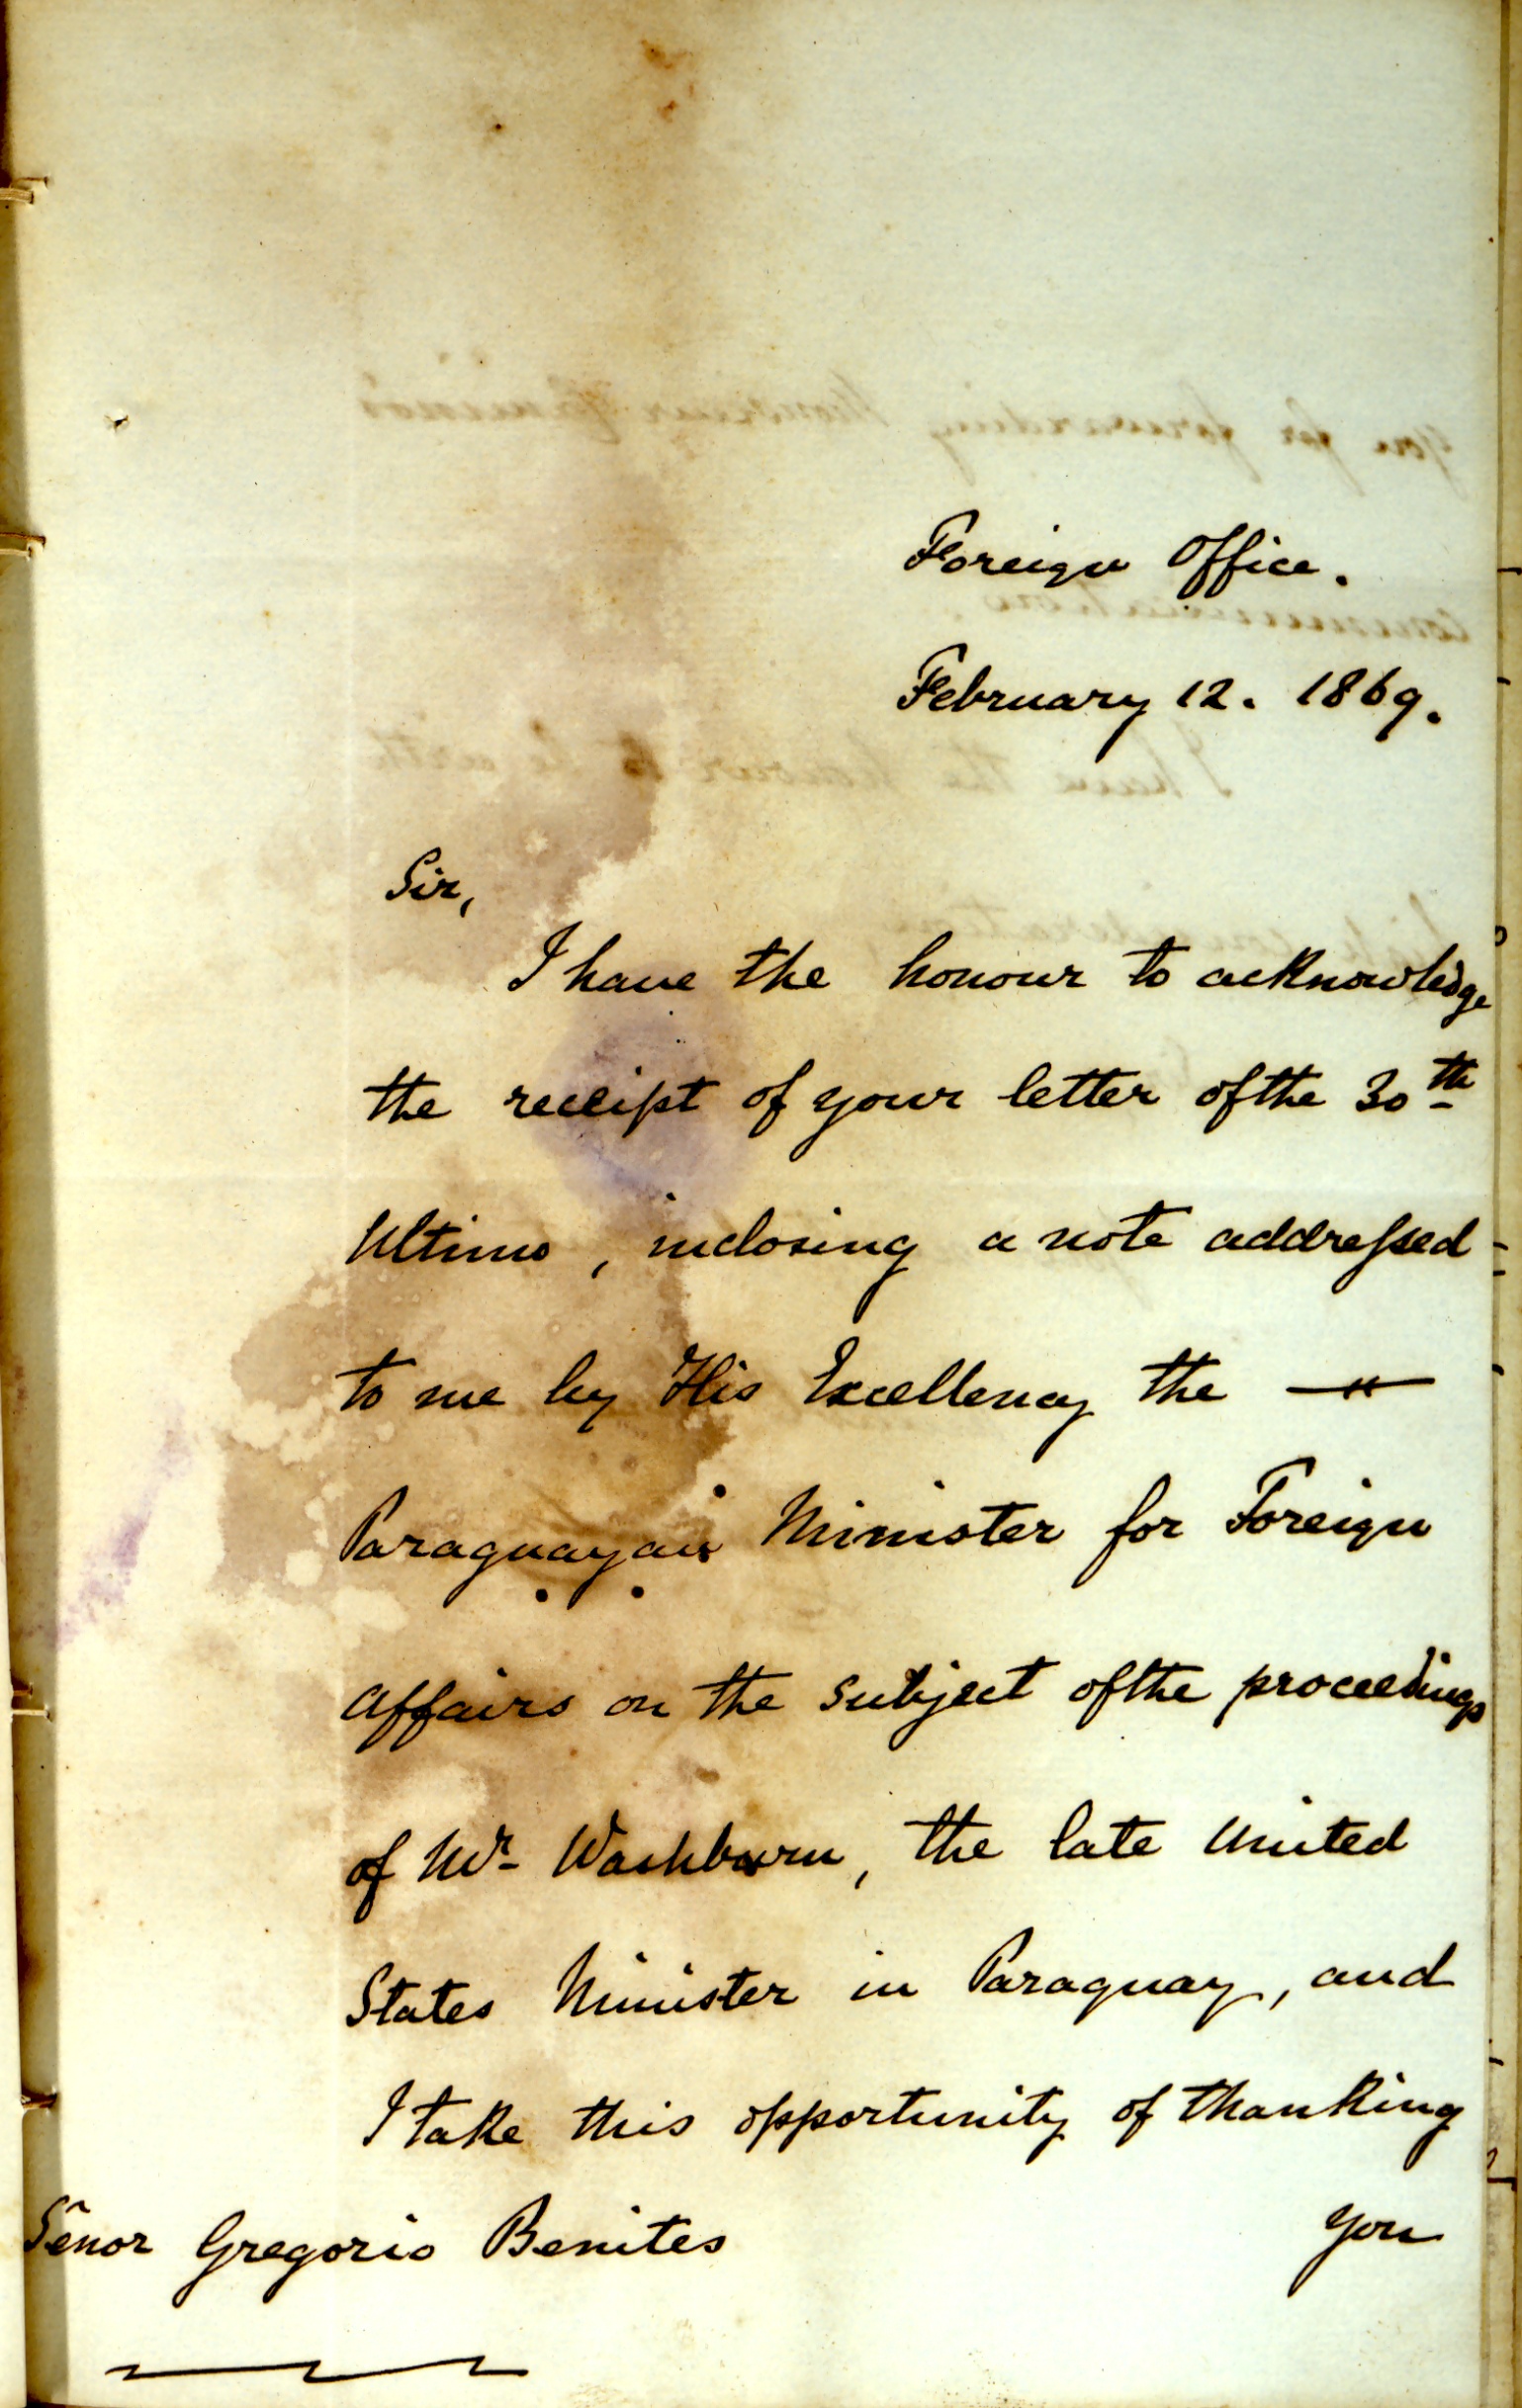 Foreign Office.
February 12. 1869.
Sir,
I have the honour to acknowledge
the receipt of your letter of the 30th
Ultimo, inclosing a note addressed
to me by His Excellency the —
Paraguayan Minister for Foreign
Affairs on the subject of the proceedings
of Mr Washburn, the late United
States Minister in Paraguay, and
I take this opportunity of thanking
you
Senor Gregorio Benites